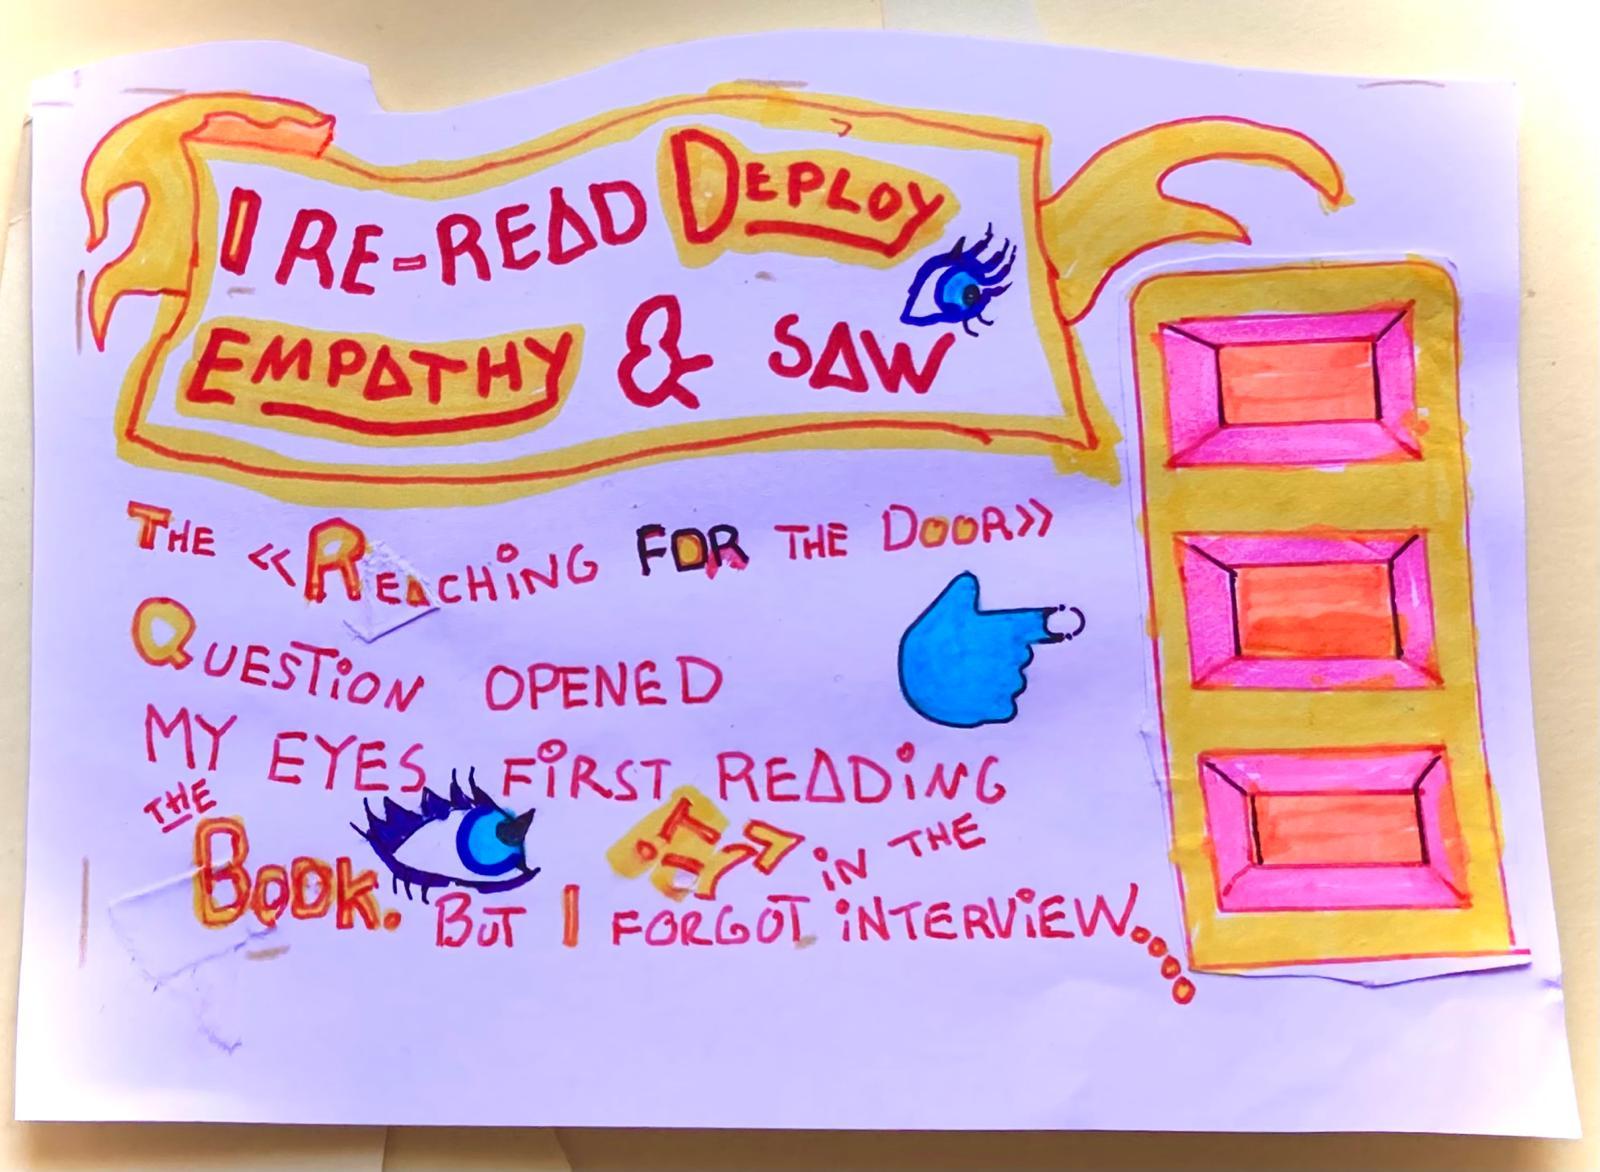 I RE-READ DEPLOY
EMPATHY & SAW
THE «REACHING FOR THE DOOR»
QUESTION OPENED
MY EYES FIRST READING
THE
BOOK. BUT I FORGOT iT iN THE
iNTERViEW....